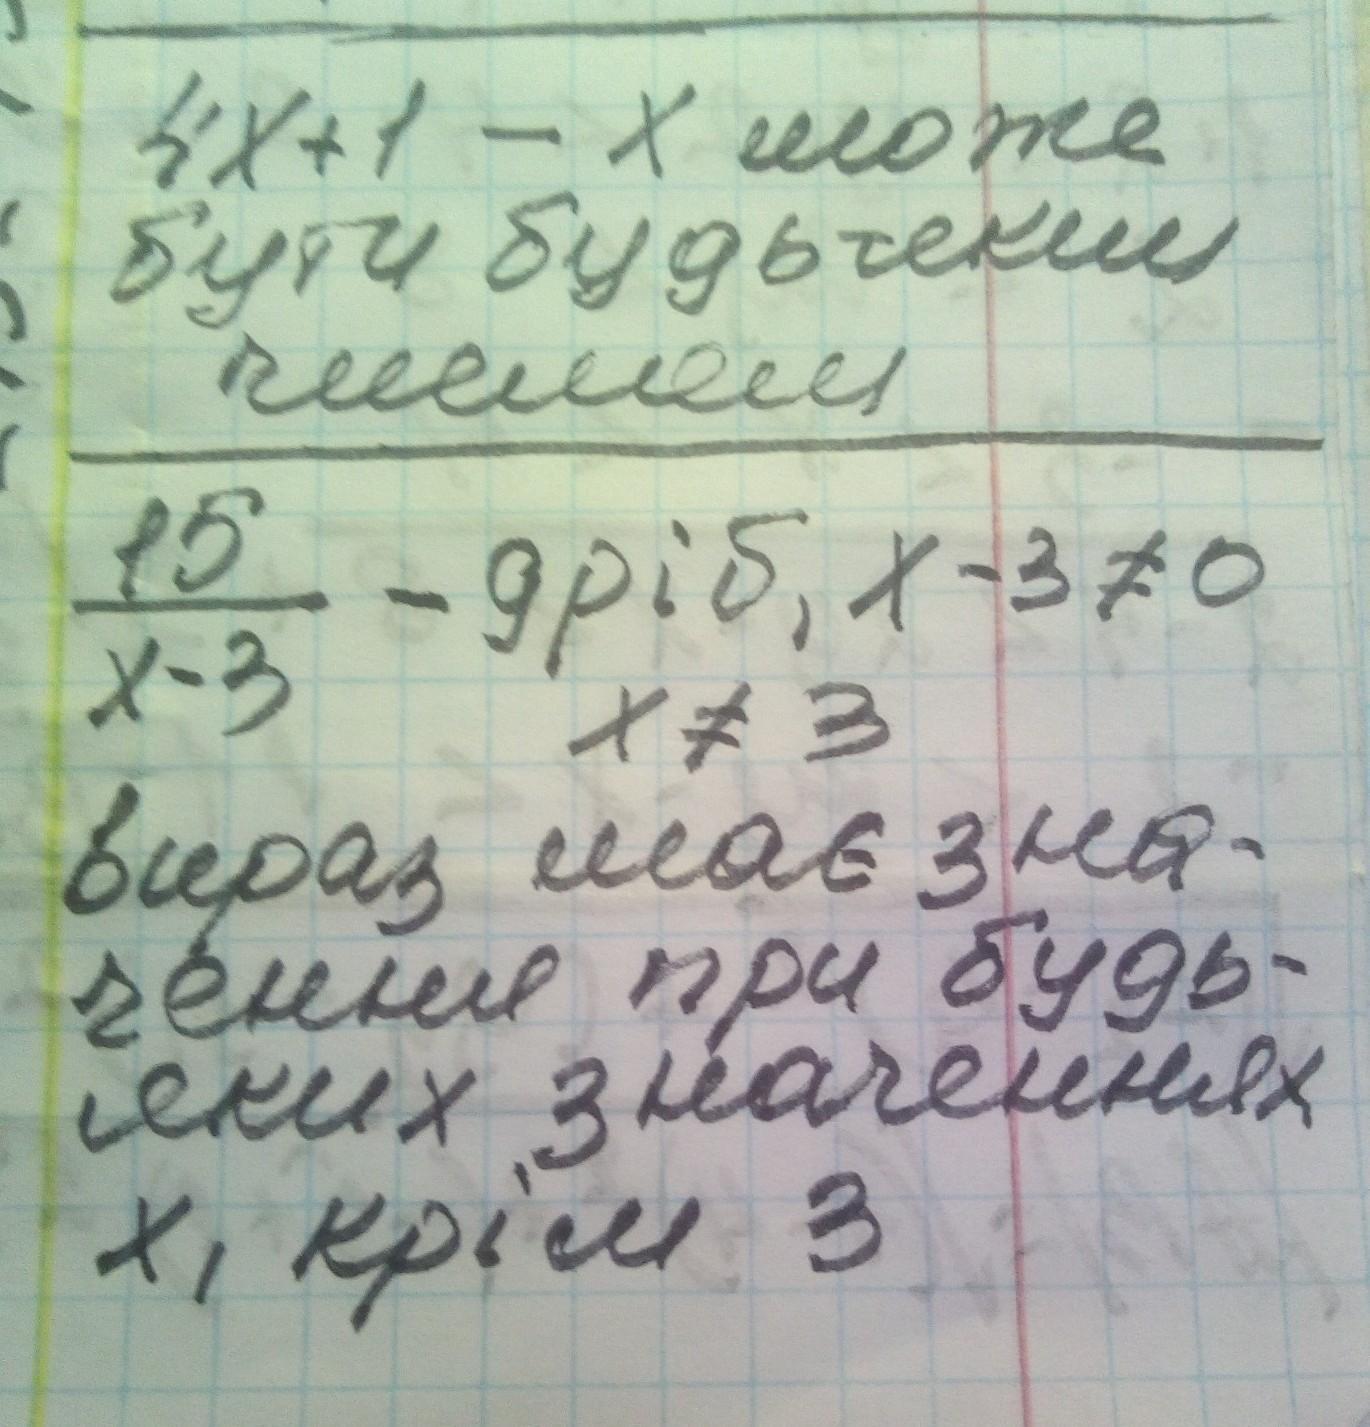 4x+1 - x може
бути будь яким
числом
15
x-3
- дріб, x-3≠0
x ≠ 3
вираз має зна-
чення при будь-
яких значеннях
x, крім 3